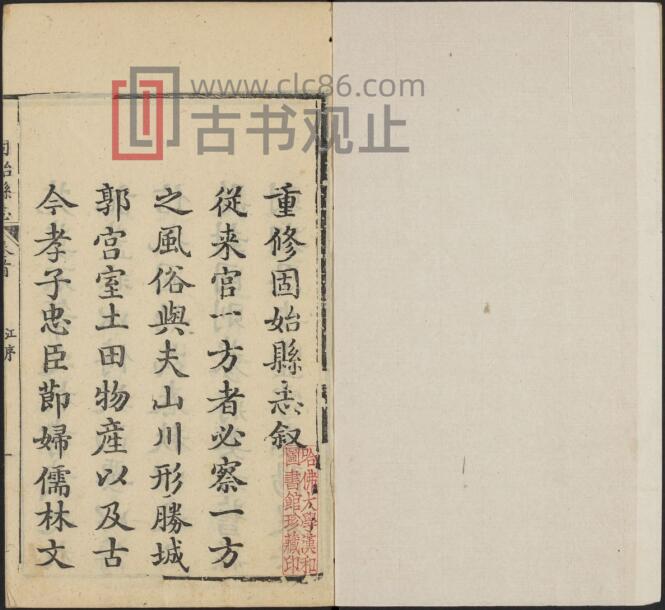 www.clc86.com
古书观止
重修固始縣志叙
從来官一方者必察一方
之風俗與夫山川形勝城
郭宮室土田物產以及古
今孝子忠臣節婦儒林文
固始縣志
卷首
江序
一
哈佛大學漢和
圖書館珍藏印